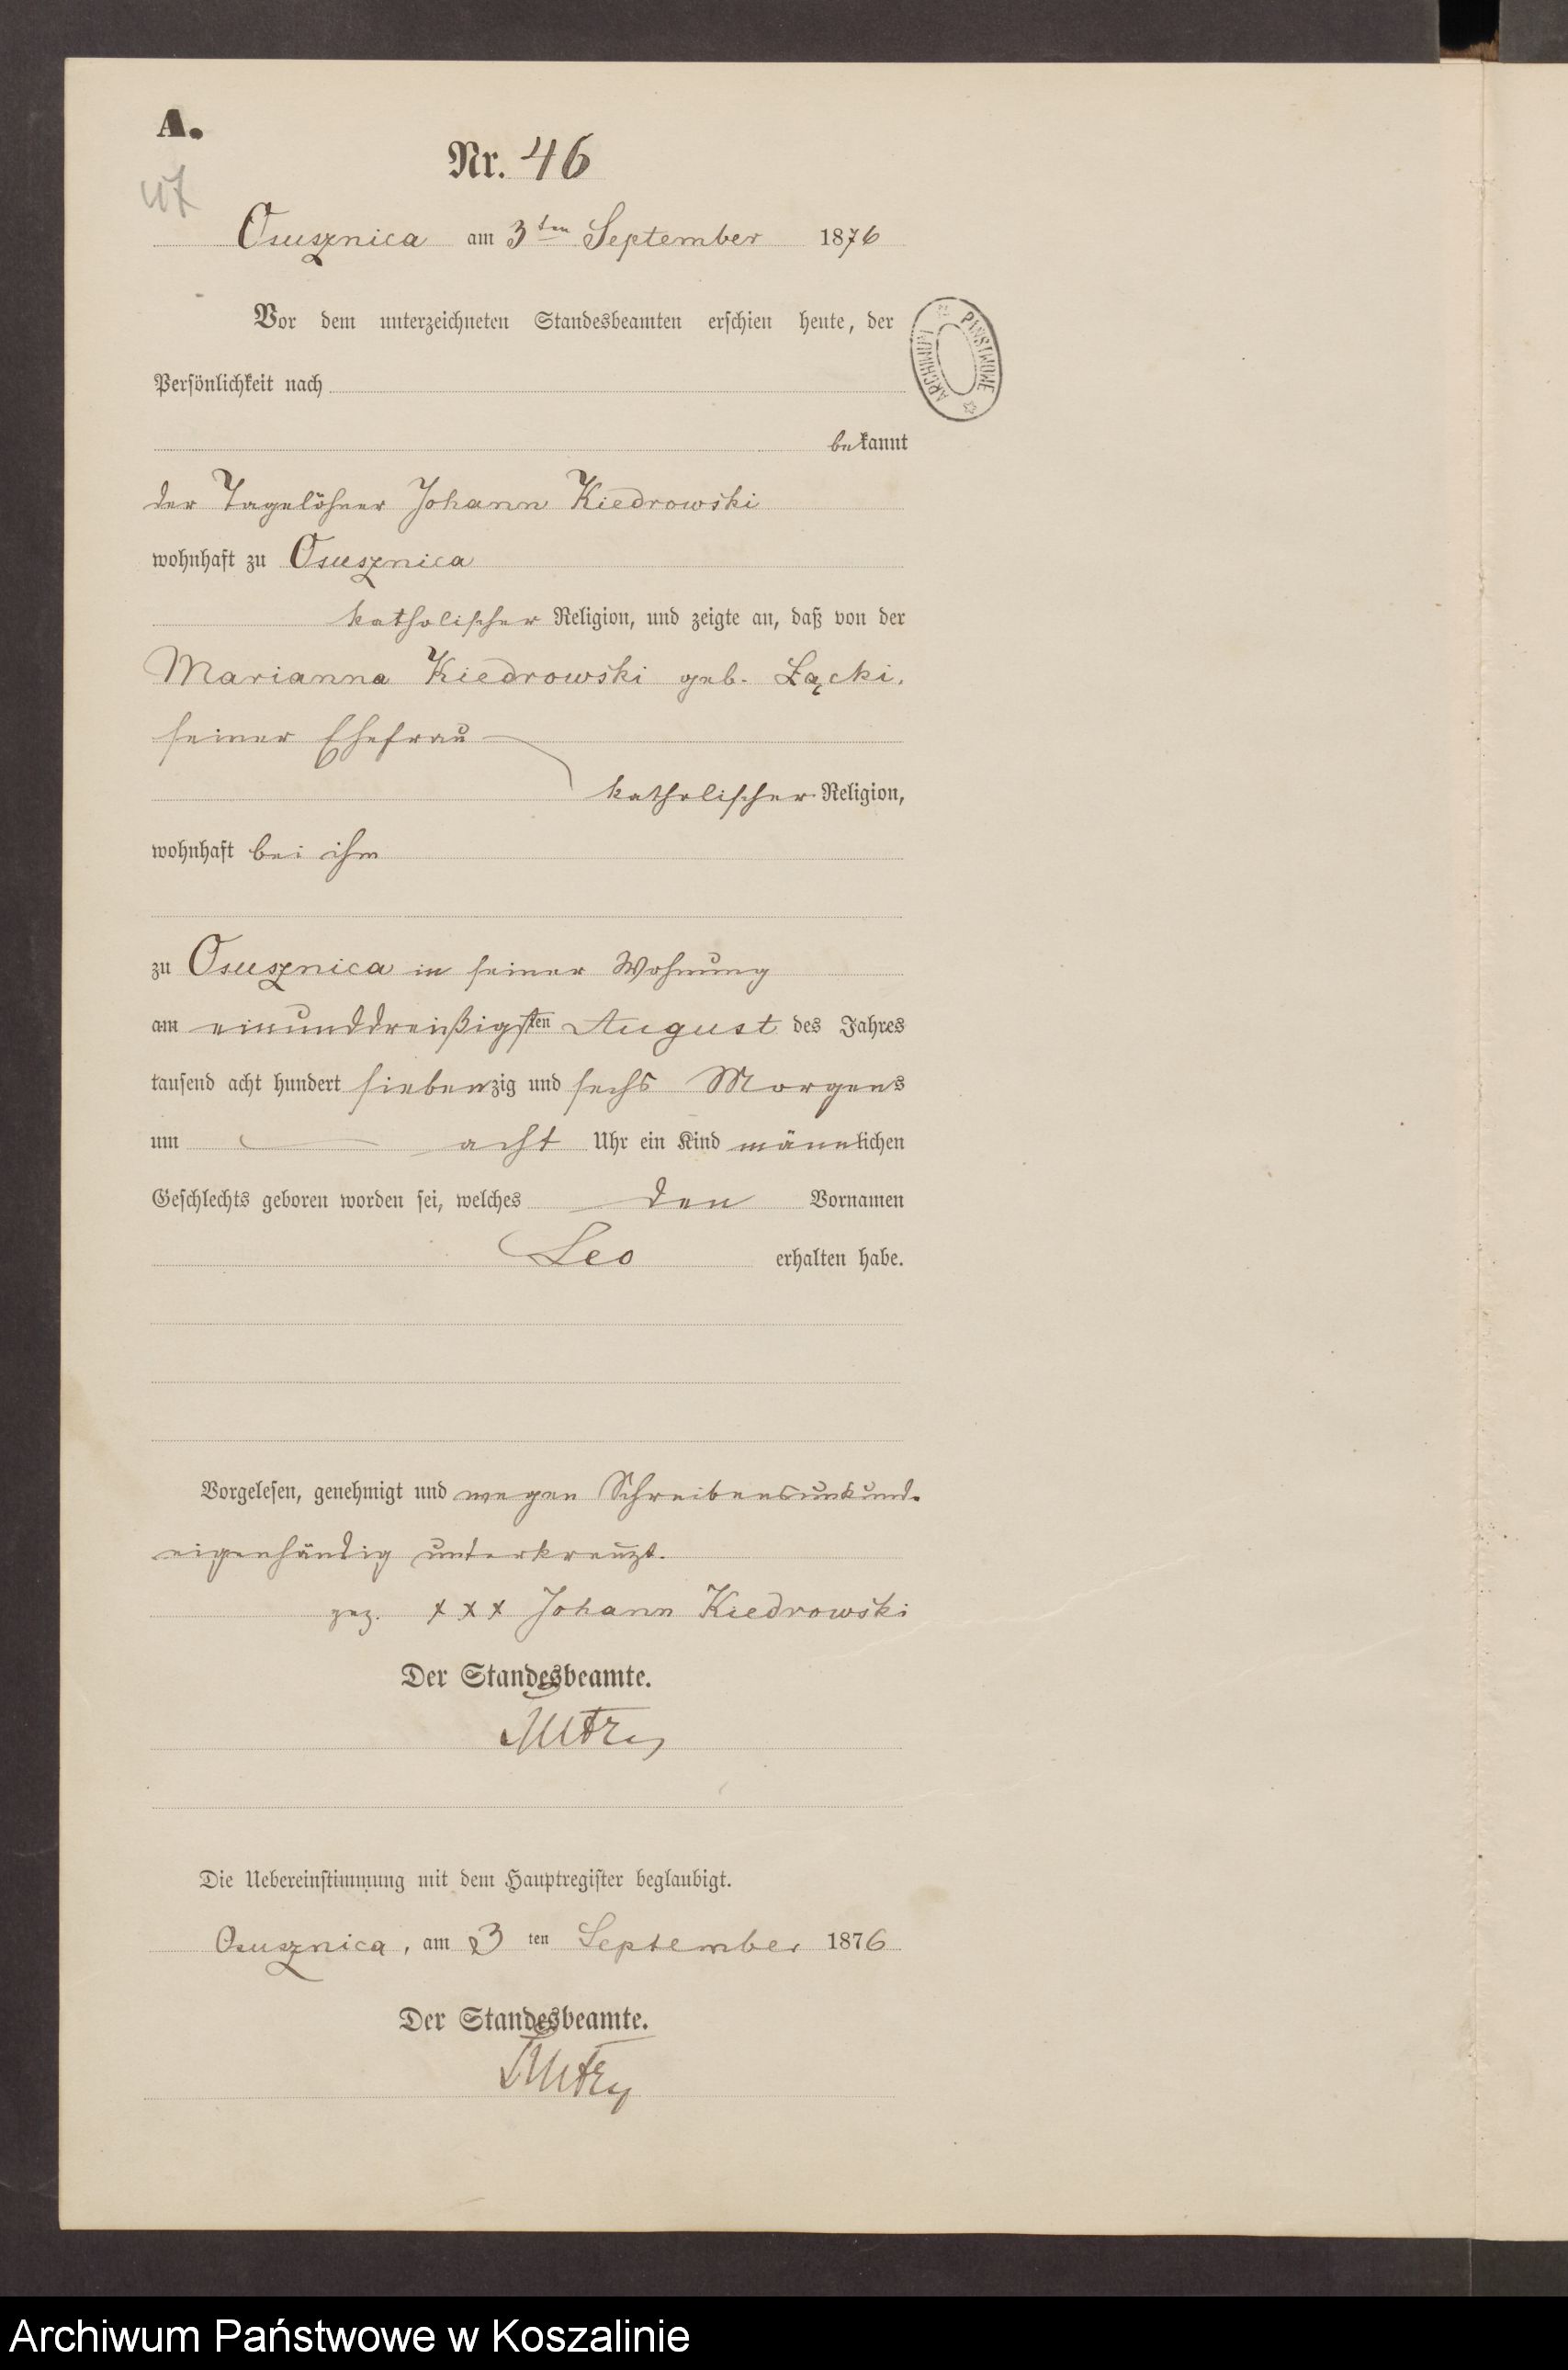 A.
47
Nr. 46
Osusznica am 3ten September 1876
Vor dem unterzeichneten Standesbeamten erschien heute, der
Persönlichkeit nach
bekannt
der Tagelöhner Johann Kiedrowski
wohnhaft zu Osusznica
katholischer Religion, und zeigte an, daß von der
Marianna Kiedrowski geb. Łącki,
seiner Ehefrau
katholischer Religion,
wohnhaft bei ihm
zu Osusznica in seiner Wohnung
am einunddreißigsten August des Jahres
tausend acht hundert siebenzig und sechs Morgens
um acht Uhr ein Kind männlichen
Geschlechts geboren worden sei, welches den Vornamen
Leo erhalten habe.
Vorgelesen, genehmigt und wegen Schreibensunkund.
eigenhändig unterkreuzt.
gez. xxx Johann Kiedrowski
Der Standesbeamte.
Die Uebereinstimmung mit dem Hauptregister beglaubigt.
Osusznica, am 3 ten September 1876
Der Standesbeamte.
ARCHIWUM PAŃSTWOWE
Archiwum Państwowe w Koszalinie